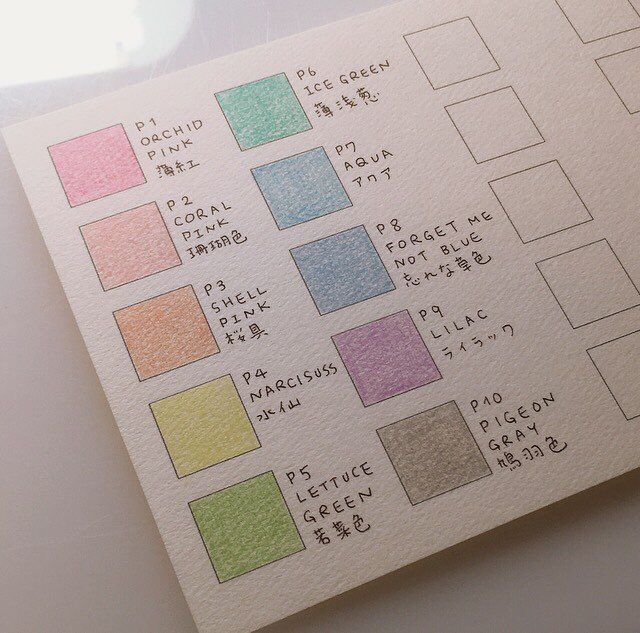 P1
ORCHID
PINK
薄紅
P2
CORAL
PINK
珊瑚色
P3
SHELL
PINK
桜貝
P4
NARCISUSS
水仙
P5
LETTUCE
GREEN
若葉色
P6
ICE GREEN
薄浅葱
P7
AQUA
アクア
P8
FORGET ME
NOT BLUE
忘れな草色
P9
LILAC
ライラック
P10
PIGEON
GRAY
鳩羽色